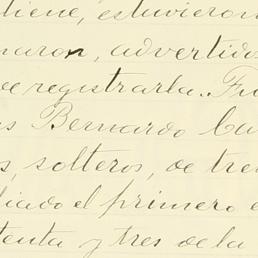 tiene, estuvieron
maron, advertidos
de registrarla. Fu
s Bernardo Ca
s, solteros, de tre
liado el primero e
tenta y tres de la